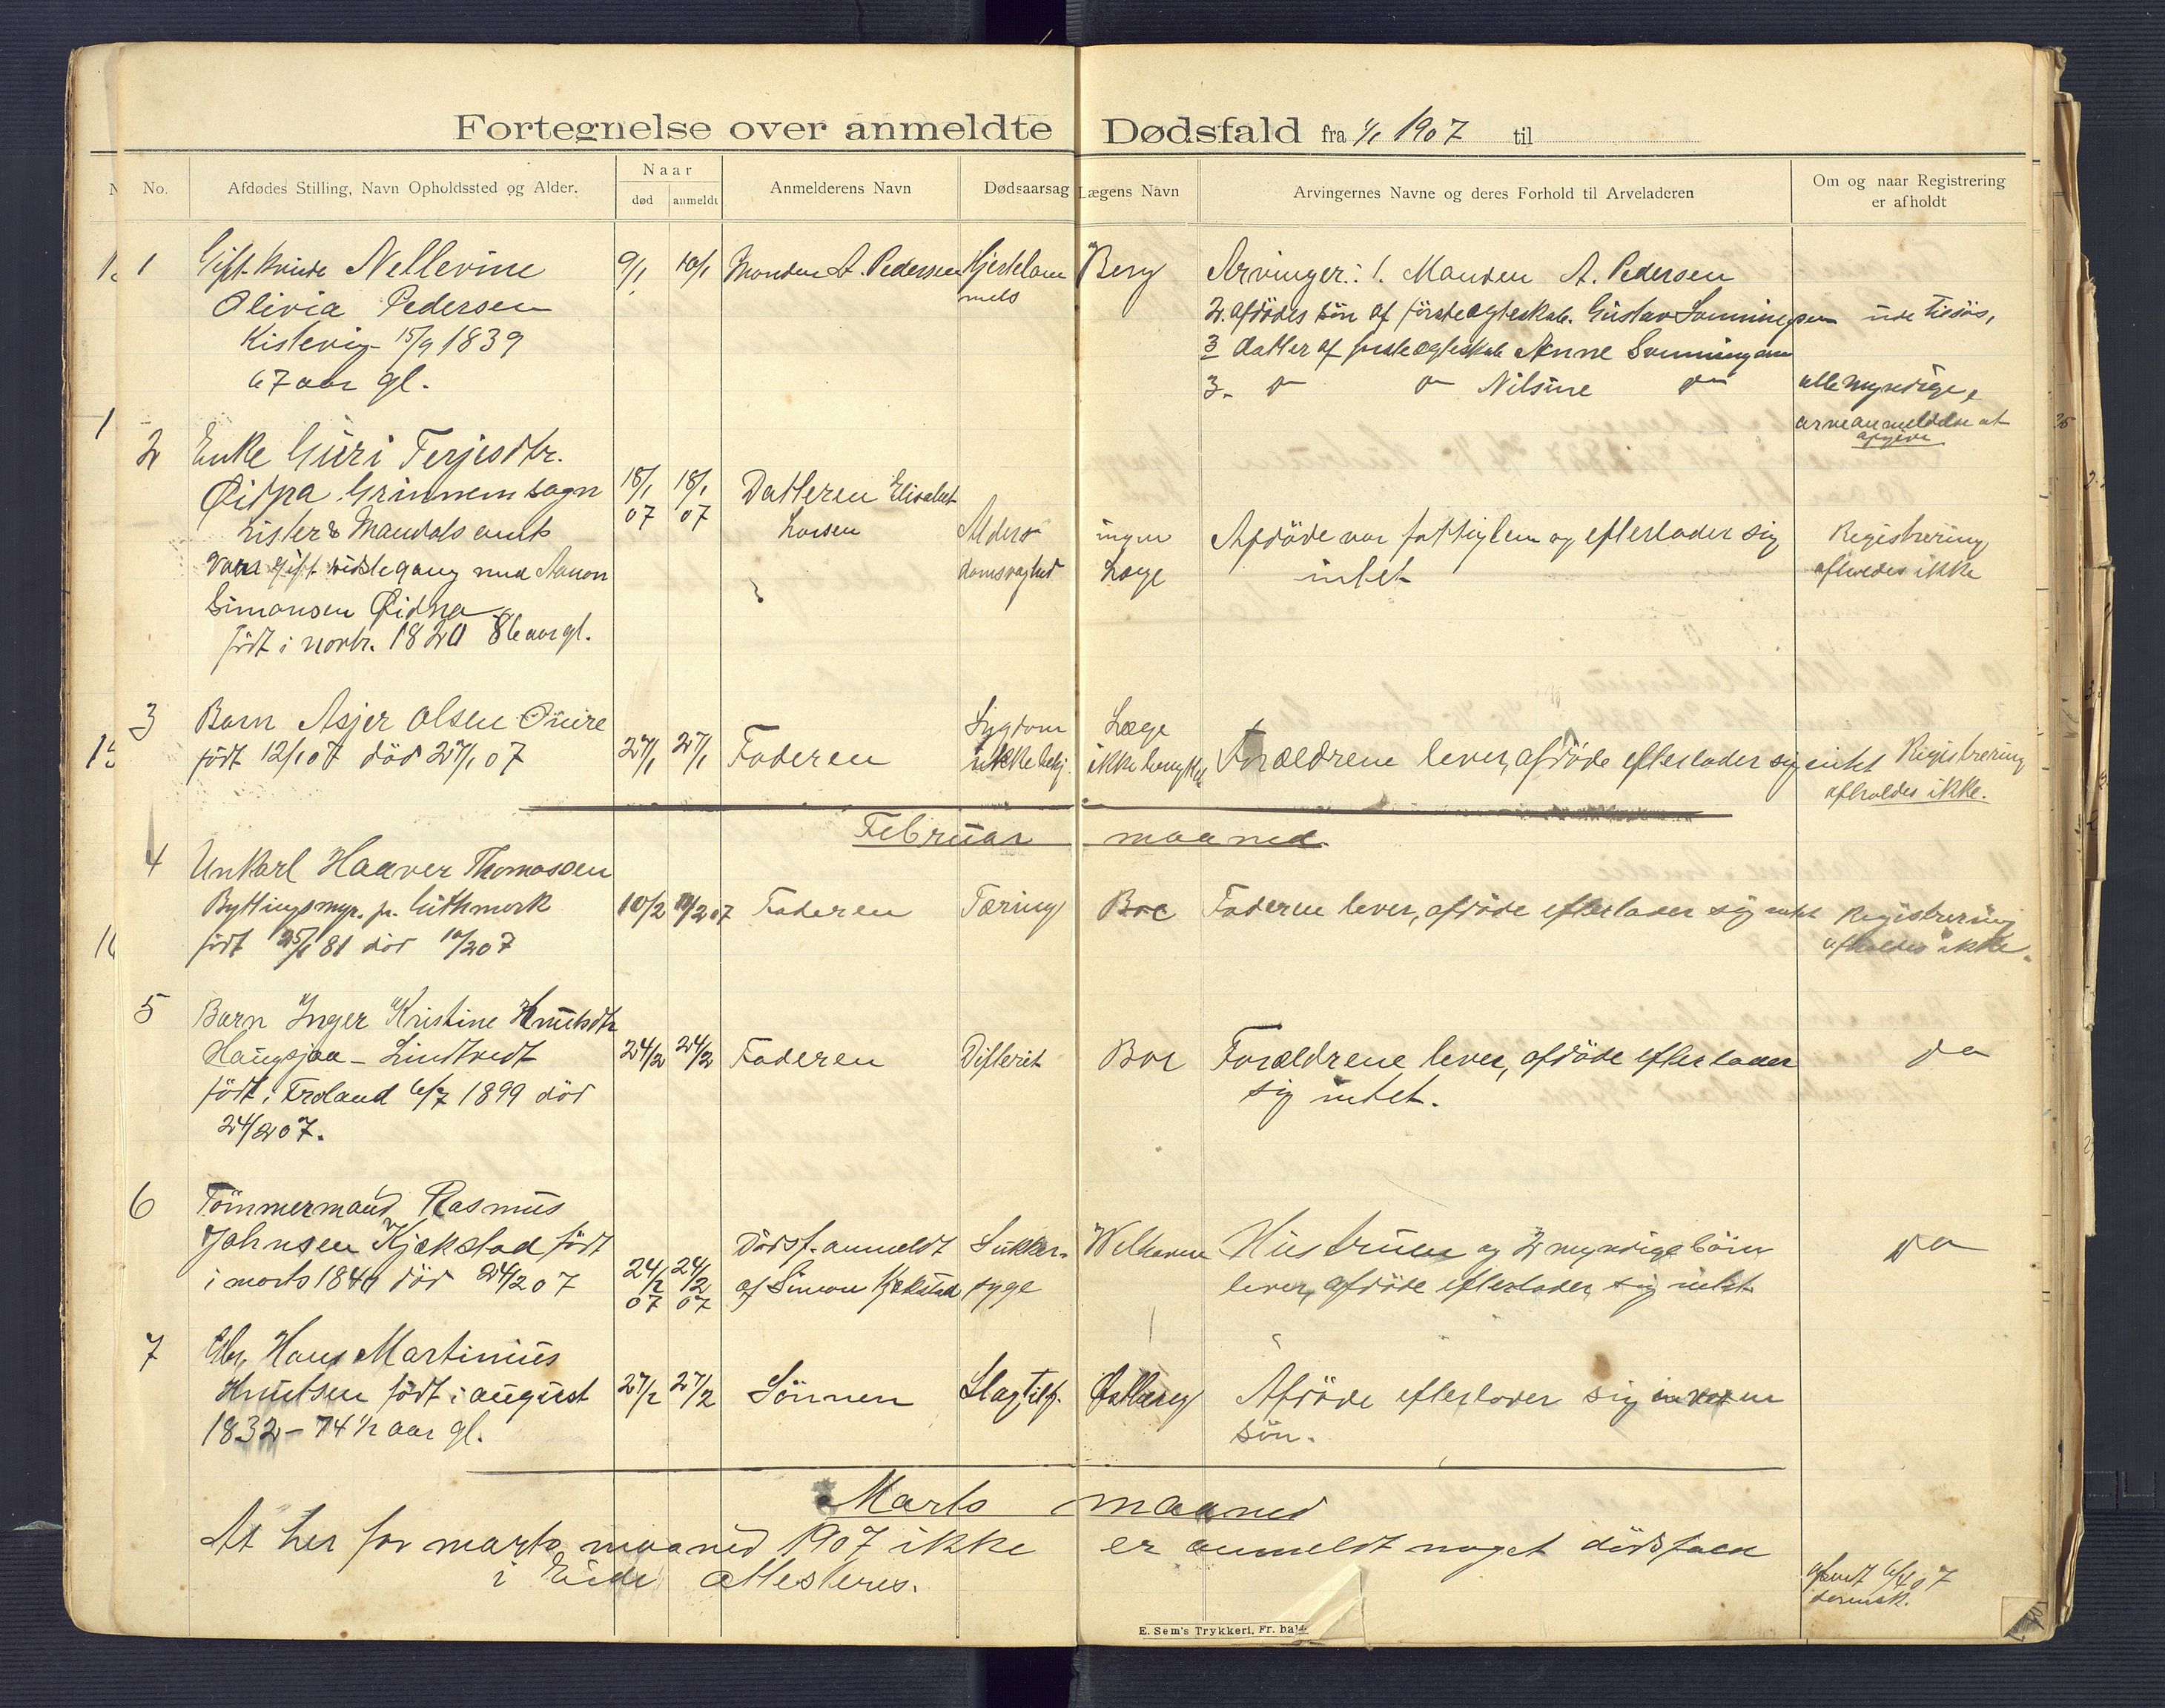 Fortegnelse over anmeldte Dødsfald fra 1/1 1907 til
No. Afdødes Stilling, Navn Opholdssted og Alder. Naar død anmeldt Anmelderens Navn Dødsaarsag Lægens Navn Arvingernes Navne og deres Forhold til Arveladeren Om og naar Registrering er afholdt
1 Gift Kvinde Nellevine 9/1 10/1 Manden A. Pedersen Hjertelam Berg Arvinger: 1. Manden A. Pedersen
Olivia Pedersen mels 2. afdødes søn af første ægteskab. Gustav Sønningsen
Kistevig 15/9 1839 3 datter af første ægteskab Anne Sønningsen
67 aar gl. 3. do do Nilsine do alle myndige,
arveanmeldelse at
afgive
2 Enke Guri Terjesdtr.
Øidna Grinnem sogn 18/1 07 18/1 07 Datteren Elisabet
Lister & Mandals amt Larsen Alders ingen Afdøde var fattiglem og efterlader sig Registrering
Vars gift sidste gang med Aanon domsvaghed Læge intet afholdes ikke
Simonsen Øidna
født i novbr. 1820 86 aar gl.
3 Barn Asjer Olsen Sygdom Læge
født 12/1 07 død 27/1 07 27/1 27/1 Faderen ikke bekj. ikke benyttet Forældrene lever, afdøde efterlader sig intet Registrering
afholdes ikke.
Februar maaned.
4 Unkarl Haaver Thomassen
Byttingsmyr. pr. Lillemork 10/2 10/2 07 Faderen Tæring Boe Faderen lever, afdøde efterlader sig intet Registrering
født 25/1 81 død 10/2 07 afholdes ikke.
5 Barn Inger Kristine Knutsdtr
Haugsjaa - Lindtvedt 24/2 24/2 Faderen Difterit Boe Forældrene lever, afdøde efterlader do
født i Froland 6/7 1899 død sig intet.
24/2 07.
6 Tømmermand Rasmus
Johnsen Kjækstad født Dødsf. anmeldt Sukker- Welhaven Hustruen og 2 myndige børn do
i marts 1846 død 24/2 07 24/2 07 24/2 07 af Simon Kjækstad syge lever, afdøde efterlader sig intet
7 Gbr. Hans Martinius
Knutsen født i august 27/2 27/2 Sønnen Slagtilf. Østberg Afdøde efterlader sig en
1832 - 74 1/2 aar gl. søn.
Marts maaned
At her for marts maaned 1907 ikke er anmeldt noget dødsfald
i Eide attesteres. afsendt 6/4 07
E. Sem's Trykkeri, Fr. hald